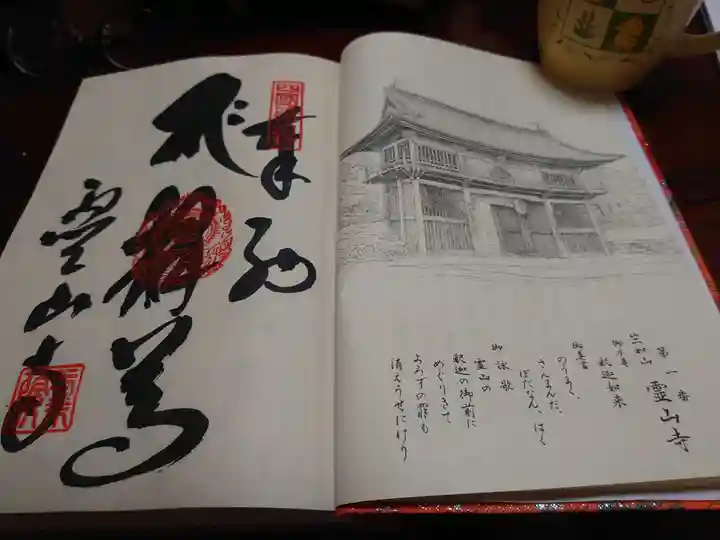 第一番
霊山寺
竺和山
御本尊
釈迦如来
御真言
のうまく、
さんまんだ、
ぼだなん、ばく
御詠歌
霊山の
釈迦の御前に
めぐりきて
よろずの罪も
消えうせにけり
奉納
霊山寺